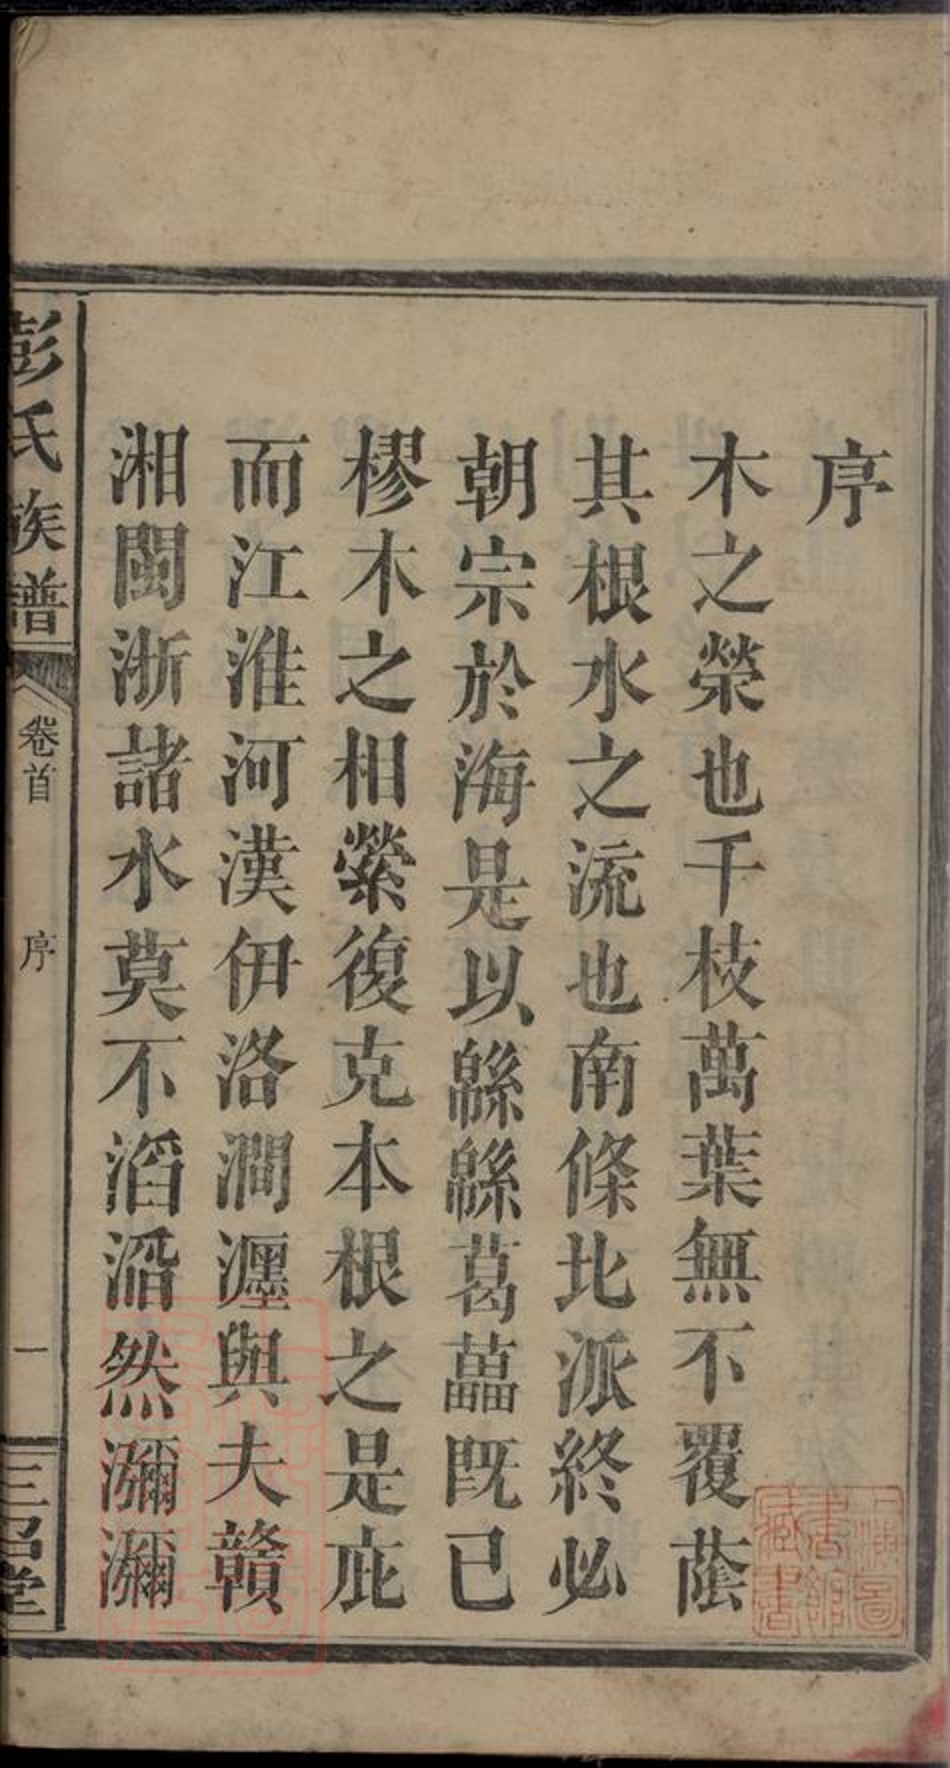 序
木之榮也千枝萬葉無不覆蔭
其根水之流也南條北派終必
朝宗於海是以緜緜葛藟既已
樛木之相縈復克本根之是庇
而江淮河漢伊洛澗瀍與夫贛
湘閩浙諸水莫不滔滔然瀰瀰
彭氏族譜
卷首
序
一
三召堂
上海圖書館藏書